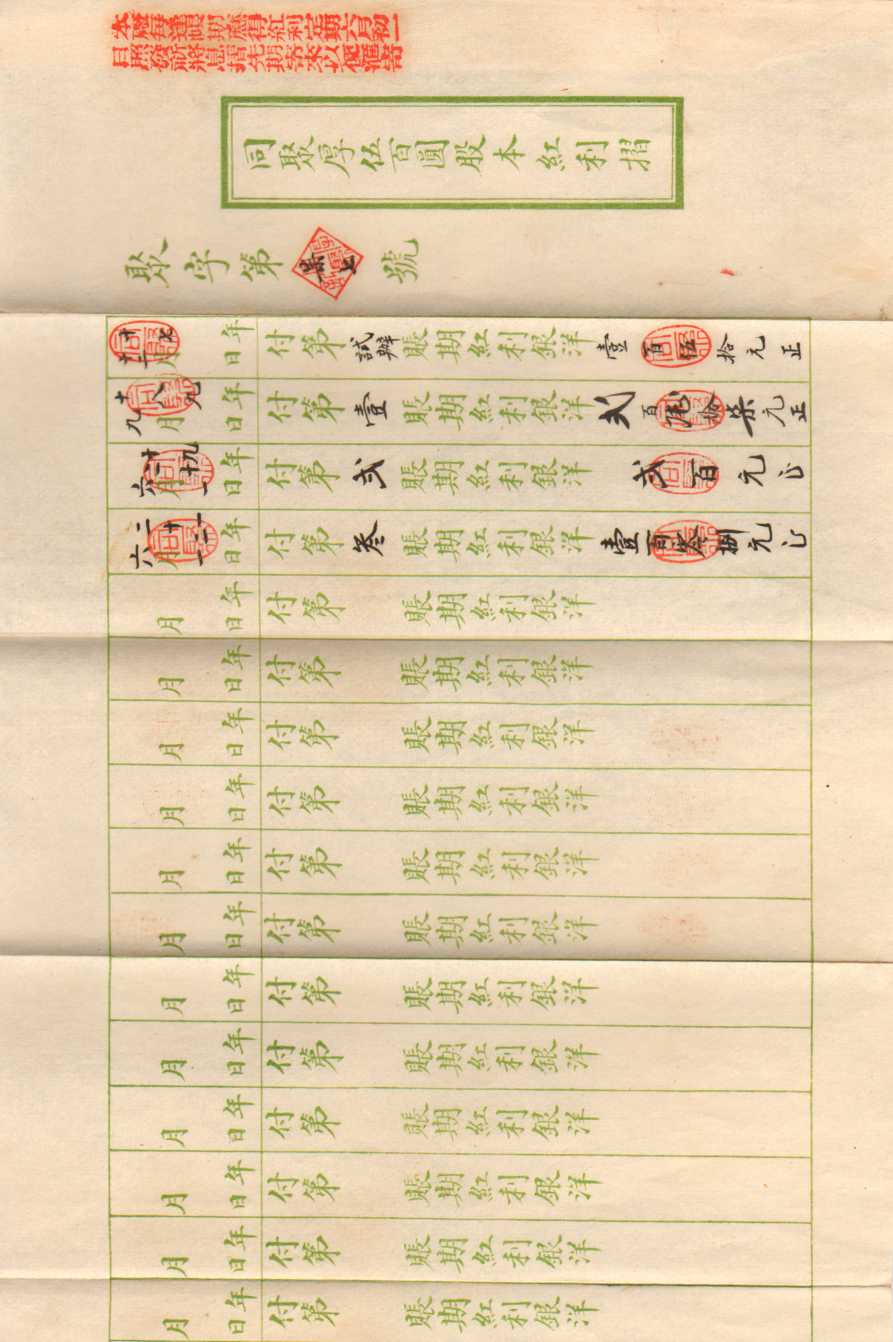 本廠每達賬期應得紅利定期六月初一
日照發祈將息摺先期寄來以便滙寄
同聚厚伍百圓股本紅利摺
聚字第 號
十七年 月 日付第試辦賬期紅利銀洋壹百伍拾元正
十八年九月 日付第壹賬期紅利銀洋弍百 拾柒元正
十九年六月 日付第弍賬期紅利銀洋弍百元正
年六月 日付第叁賬期紅利銀洋壹百 捌元正
年月日付第賬期紅利銀洋
年月日付第賬期紅利銀洋
年月日付第賬期紅利銀洋
年月日付第賬期紅利銀洋
年月日付第賬期紅利銀洋
年月日付第賬期紅利銀洋
年月日付第賬期紅利銀洋
年月日付第賬期紅利銀洋
年月日付第賬期紅利銀洋
年月日付第賬期紅利銀洋
年月日付第賬期紅利銀洋
年月日付第賬期紅利銀洋